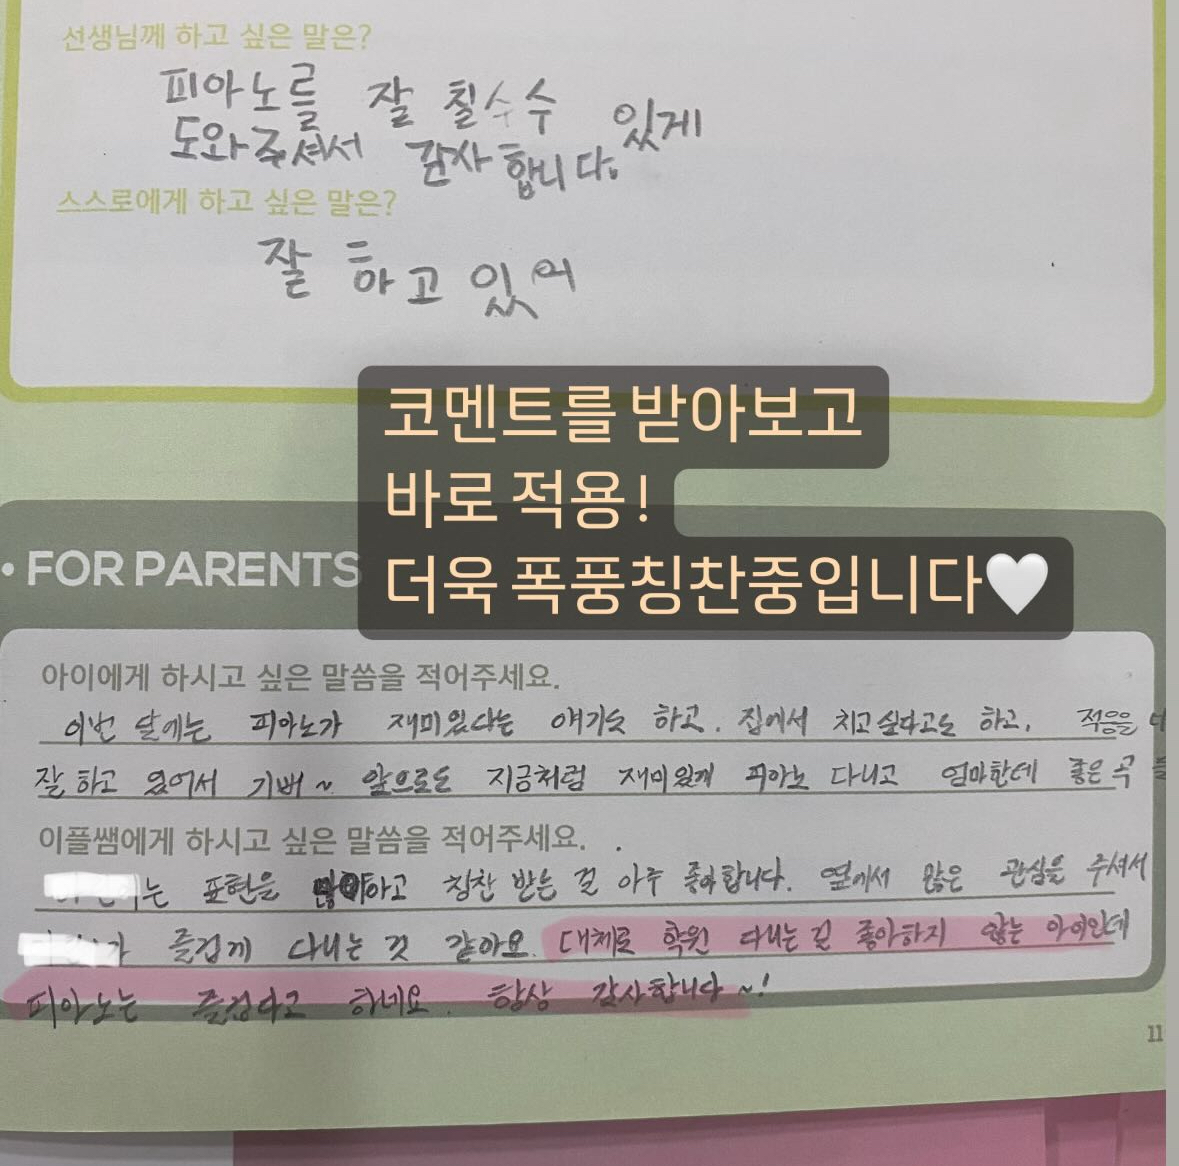 선생님께 하고 싶은 말은?
피아노를 잘 칠수수 있게
도와주셔서 감사합니다.
스스로에게 하고 싶은 말은?
잘 하고 있어
코멘트를 받아보고
바로 적용!
더욱 폭풍칭찬중입니다🤍
• FOR PARENTS
아이에게 하시고 싶은 말씀을 적어주세요.
이번 달에는 피아노가 재미있다는 얘기도 하고, 집에서 치고싶다고도 하고, 적응을
잘 하고 있어서 기뻐~ 앞으로도 지금처럼 재미있게 피아노 다니고 엄마한테 좋은 곡
이플쌤에게 하시고 싶은 말씀을 적어주세요.
는 표현을 하고 칭찬 받는 걸 아주 좋아합니다. 옆에서 많은 관심을 주셔서
가 즐겁게 다니는 것 같아요. 대체로 학원 다니는 걸 좋아하지 않는 아이인데
피아노는 즐겁다고 하네요. 항상 감사합니다~!
11